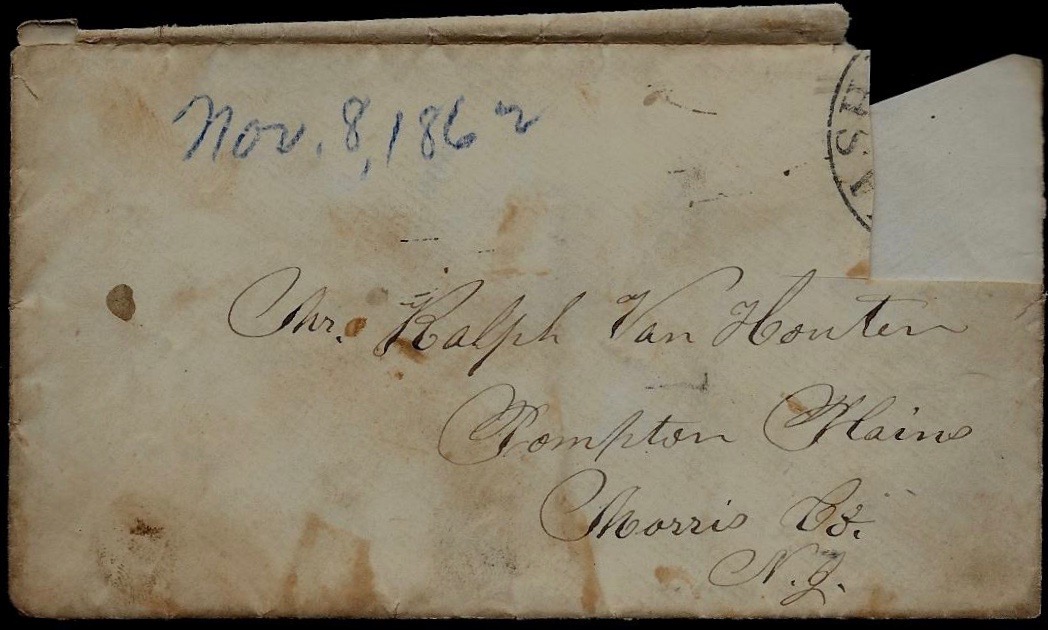 Nov. 8, 1862
Mr. Ralph Van Houten
Pompton Plains
Morris Co.
N.J.